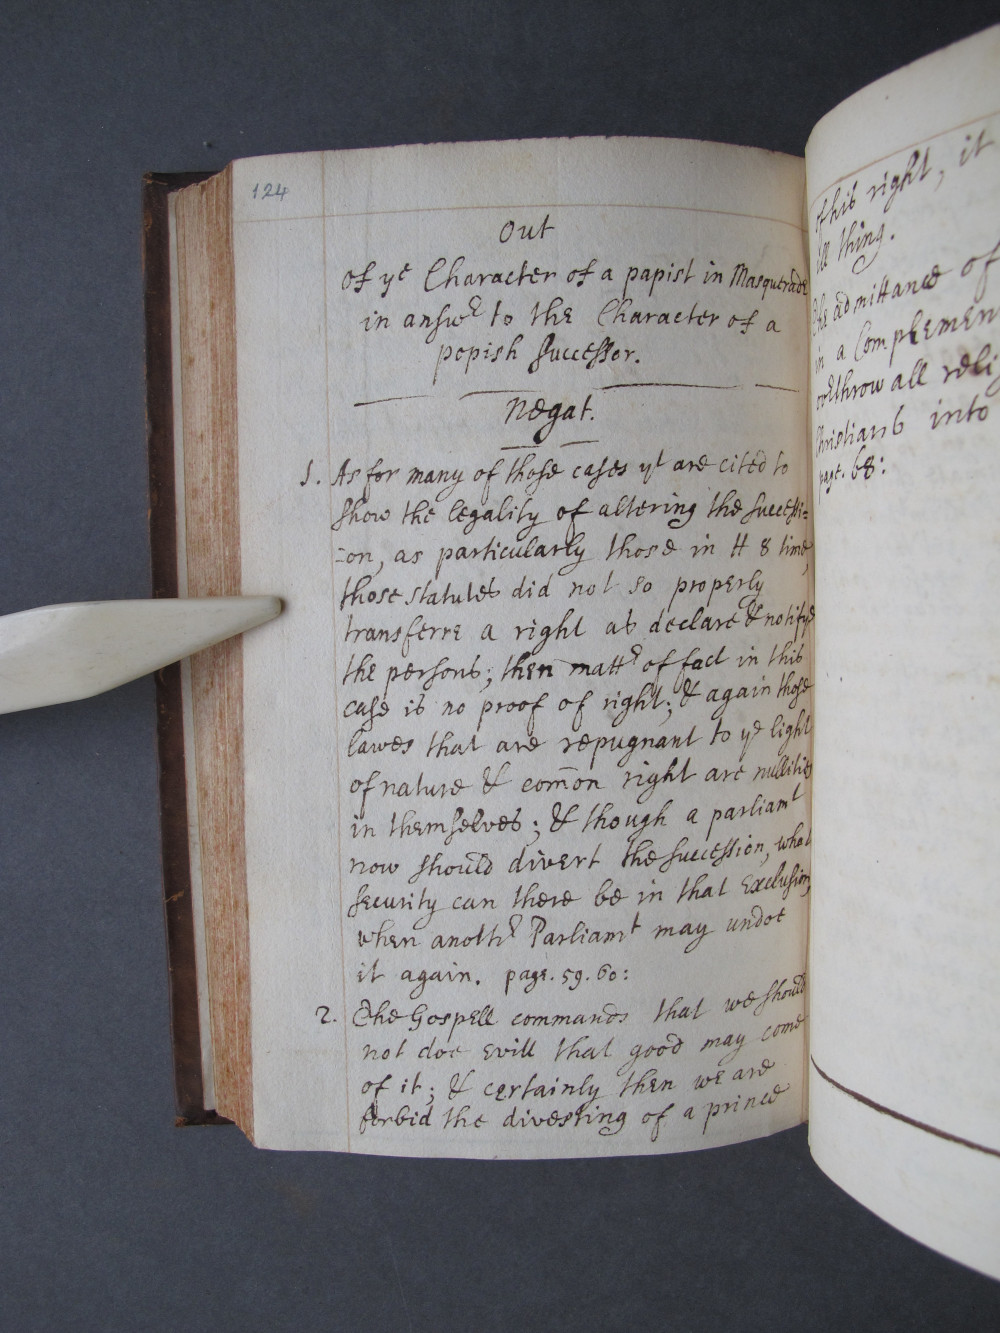 124
Out
of ye Character of a papist in Masquerade
in answr to the Character of a
popish successor.
Negat.
1. As for many of those cases yt are cited to
show the legality of altering the successi=
=on, as particularly those in H 8 time,
those statutes did not so properly
transferre a right as declare & notifye
the persons; then mattr of fact in this
case is no proof of right; & again those
lawes that are repugnant to ye light
of nature & com̄on right are nullities
in themselves; & though a parliamt
now should divert the succession, what
security can there be in that Exclusion,
when anothr Parliamt may undoe
it again. page. 59. 60:
2. The Gospell commands that we should
not doe evill that good may come
of it; & certainly then we are
forbid the divesting of a prince
of his right, it
ill thing.
The admittance of
in a Complement
ovrthrow all reli
Christians into
page. 68: